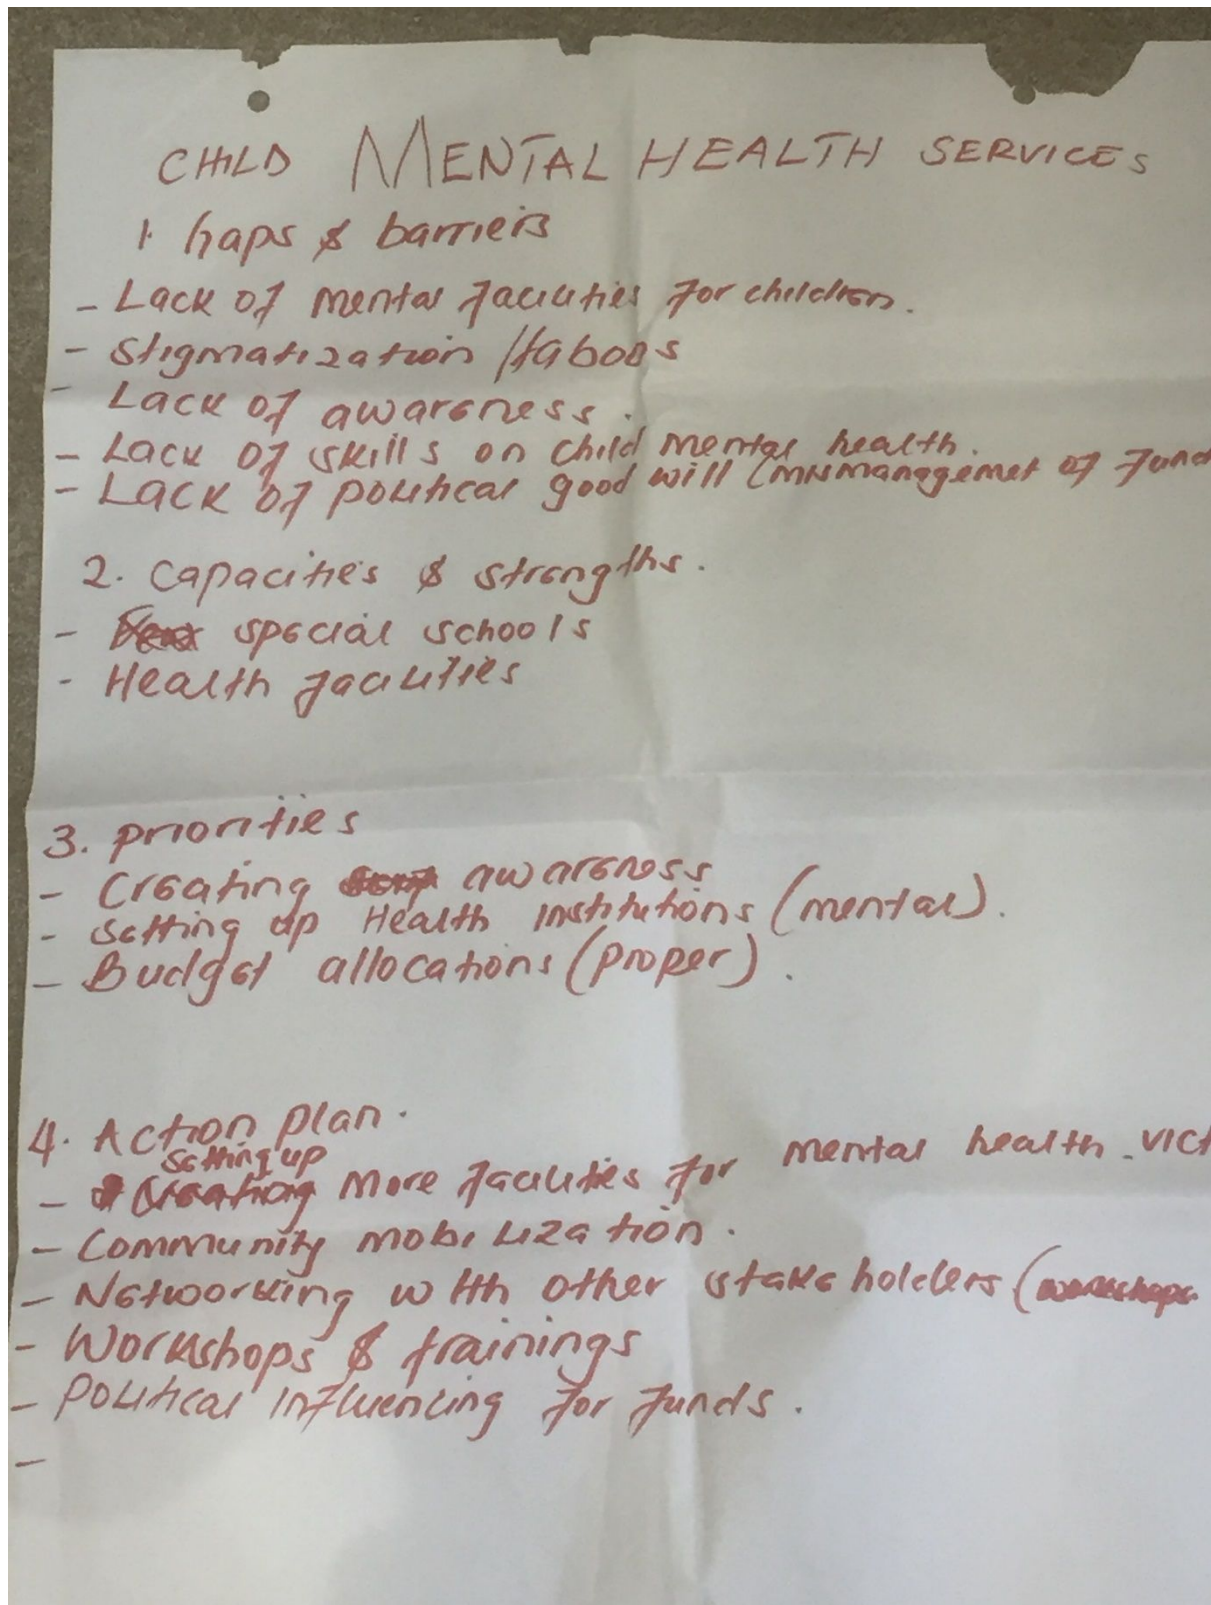 CHILD MENTAL HEALTH SERVICES
1. Gaps & barriers
- Lack of mental facilities for children.
- Stigmatization / taboos
- Lack of awareness.
- Lack of skills on child mental health.
- Lack of political good will (mismanagemet of fund
2. Capacities & strengths.
- special schools
- Health facilities
3. Priorities
- Creating awareness
- Setting up Health Institutions (mental).
- Budget allocations (proper).
4. Action plan.
setting up
- Creating More facilities for mental health vict
- Community mobilization.
- Networking with other stakeholders (workshops
- Workshops & trainings
- Political Influencing for funds.
-